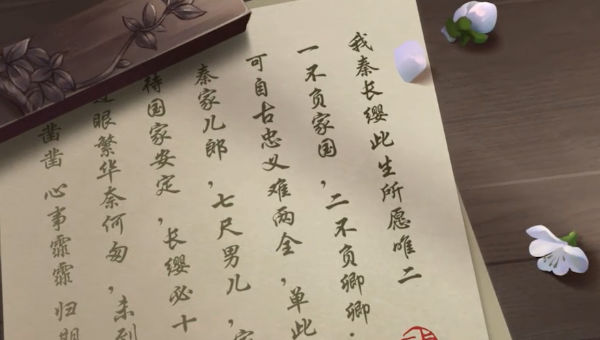 我秦长缨此生所愿唯二
一不负家国，二不负卿卿。
可自古忠义难两全，单此
秦家儿郎，七尺男儿，
待国家安定，长缨必十
眼繁华奈何匆，未到
凿凿 心事霏霏 归期